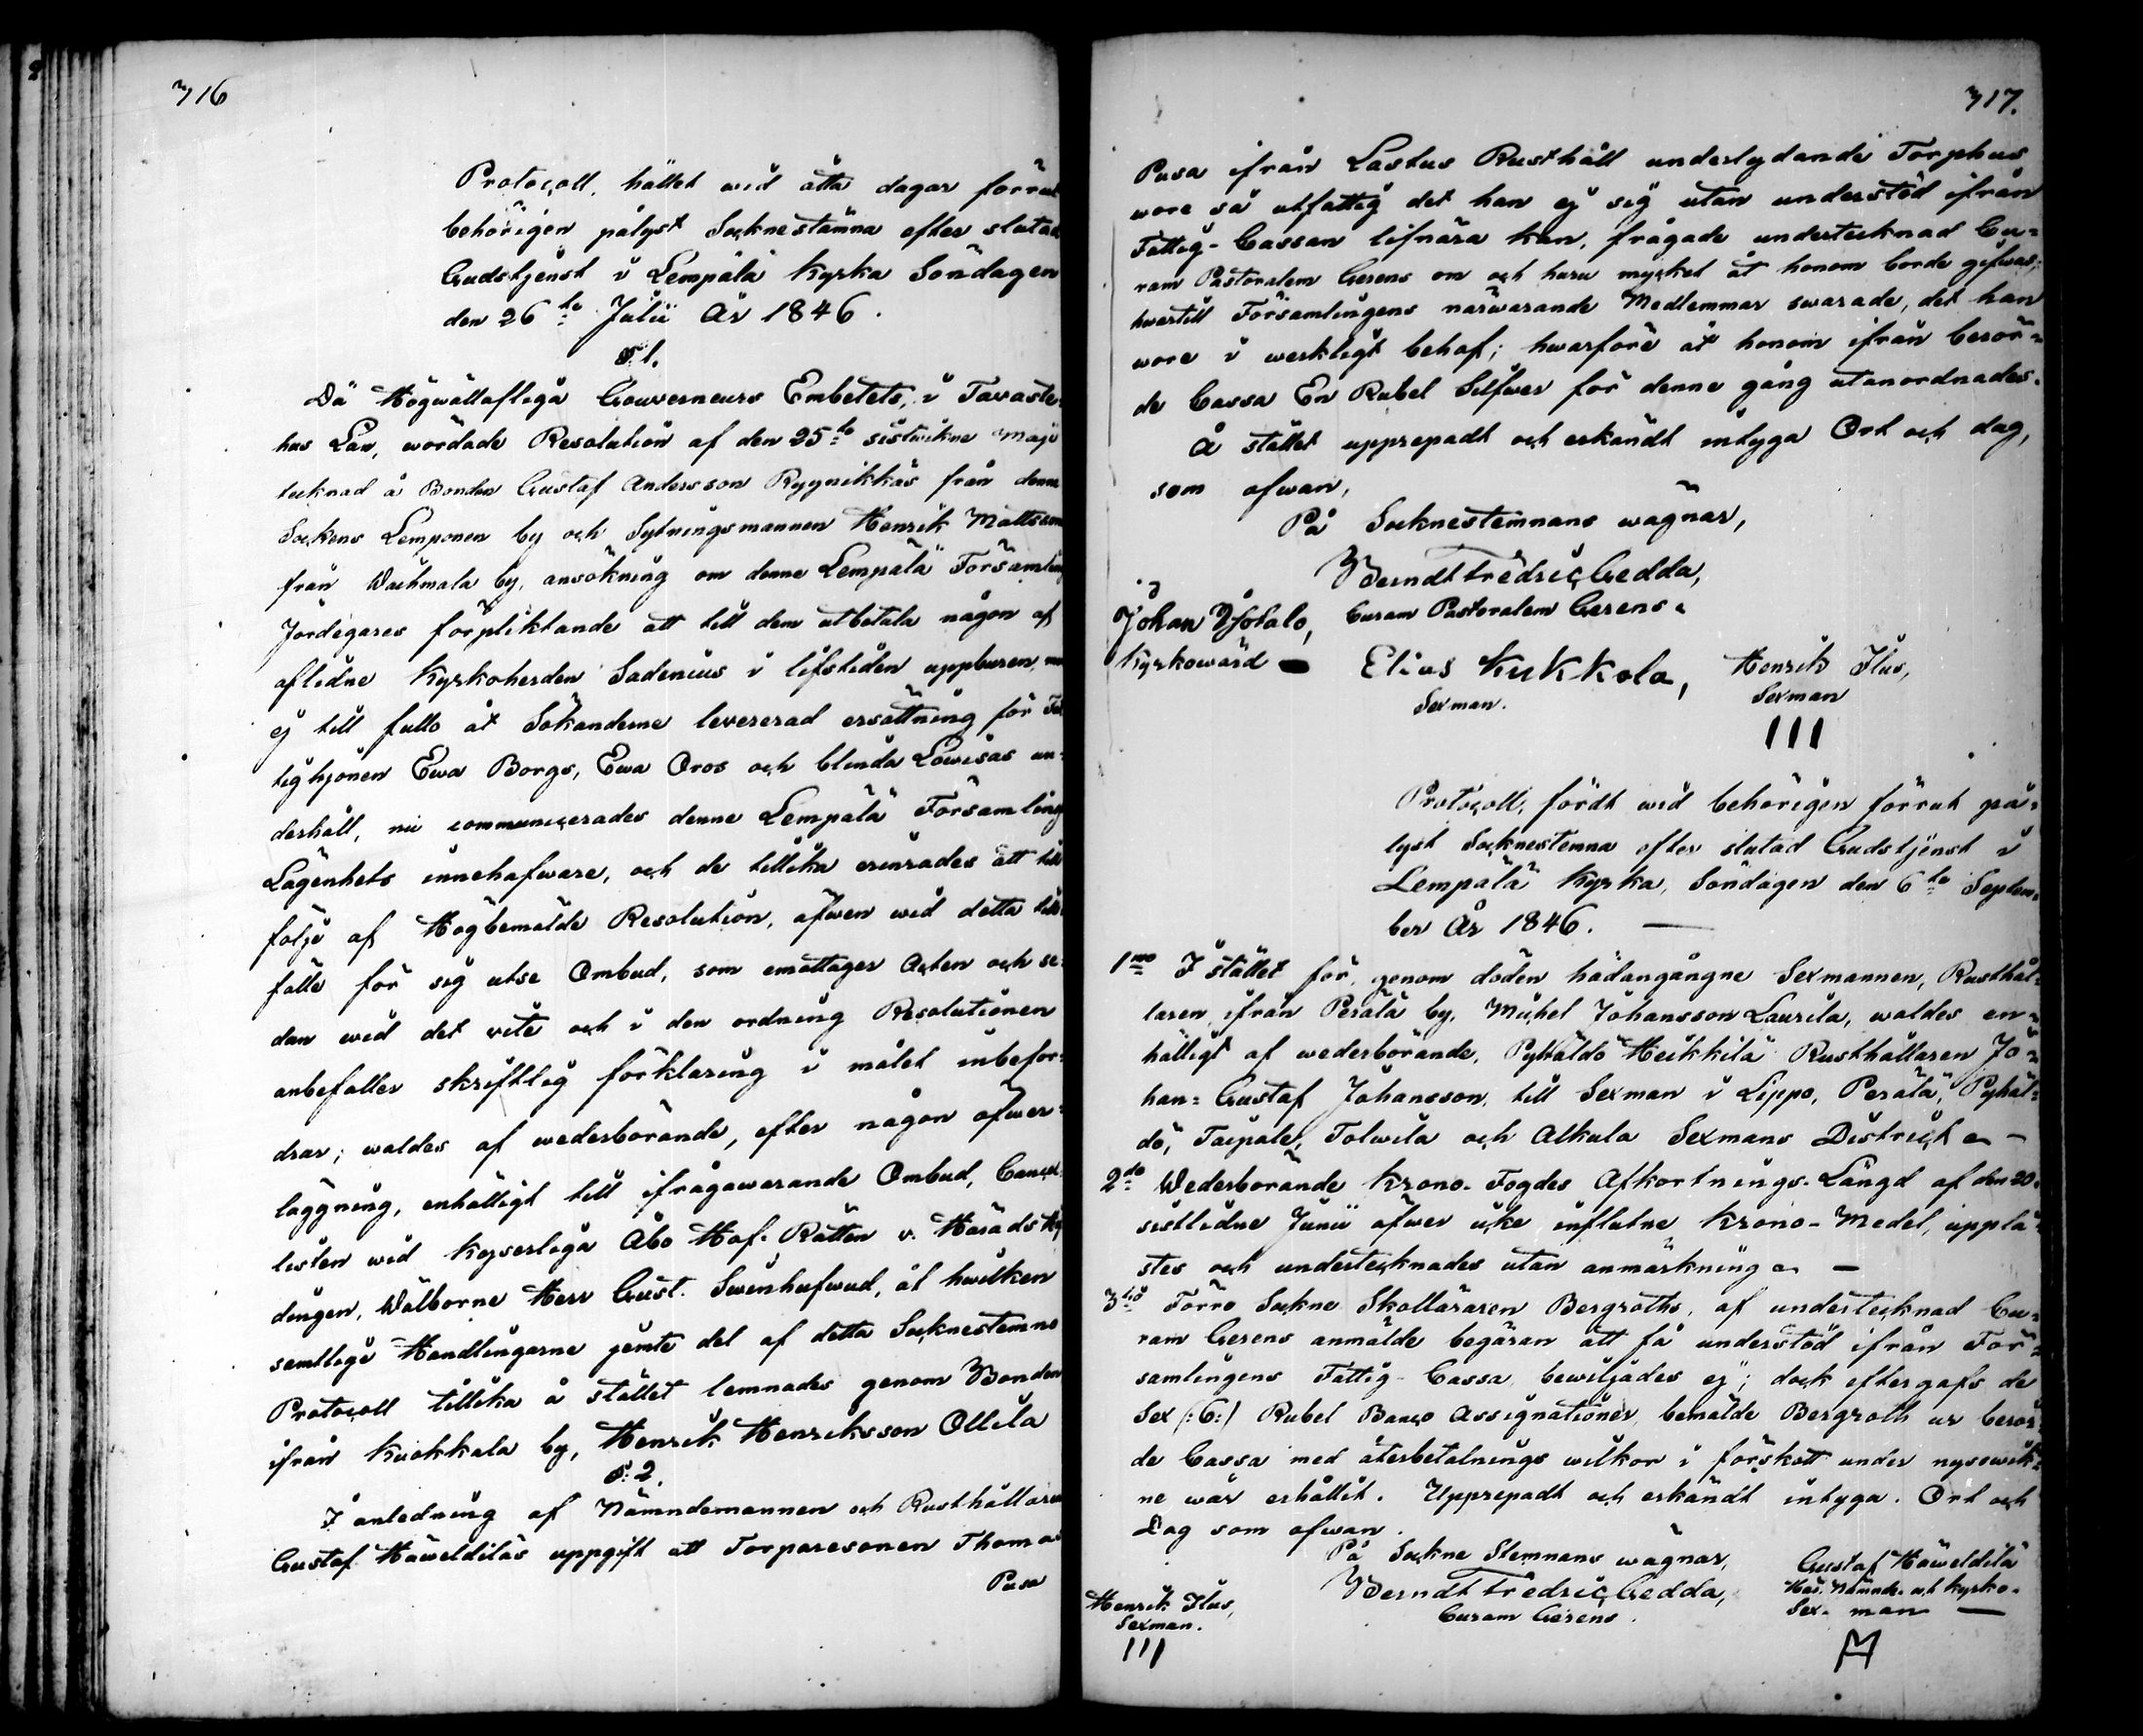 316
Protocoll, hållet wid åtta dagar förrut
behörigen pålyst Socknestämna efter slutad
Gudstjenst i Lempälä Kyrka Söndagen
den 26te Julii År 1846.
§.1.
Då Högwällofliga Gouverneurs Embetets, i Tavaste-
hus Län, wördade Resolution af den 25te sistwikne Maji
tecknad å Bonden Gustaf Andersson Ryynikkäs från denne
Sockens Lemponen by och Sytningsmannen Henrik Mattsson
från Waihmala by, ansökning om denne Lempälä Församlings
Jordegares förpliktande att till dem utbetala någon af
aflidne Kyrkoherden Sadenius i lifstiden uppburen, men
ej till fullo åt Sökanderne levererad ersättning för Fat-
tighjonen Ewa Borgs, Ewa Oros och blinda Lowisas un-
derhåll, nu communicerades denne Lempälä Församlings
Lägenhets innehafware, och de tillika erinrades att till
följe af Högbemälde Resolution, äfwen wid detta till-
fälle för sig utse Ombud, som emottager Acten och se-
dan wid det vite och i den ordning Resolutionen
anbefaller skriftlig förklaring i målet inbefor-
drar; waldes af wederbörande, efter någon öfwer-
läggning, enhälligt till ifrågawarande Ombud, Cancel-
listen wid Kejserliga Åbo Hof-Rätten v. Häradshöf-
dingen, Wälborne Herr Gust. Swinhufwud, åt hwilken
samtlige Handlingarne jemte del af detta Socknestemno
Protocoll tillika å stället lemnades genom Bonden
ifrån Kuokkala by, Henrik Henriksson Ollila
§:2.
I anledning af Nämndemannen och Rusthållaren
Gustaf Häweldiläs uppgift att Torparesonen Thomas
Pasa
317.
Pasa ifrån Lastus Rusthåll underlydande Torphus
wore så utfattig det han ej sig utan understöd ifrån
Fattig-Cassan lifnära kan, frågade undertecknad Cu-
ram Pastoralem Gerens om och huru mycket åt honom borde gifwas;
hwartill Församlingens närwarande Medlemmar swarade, det han
wore i werkligt behof; hwarföre åt honom ifrån berör-
de Cassa En Rubel Silfwer för denne gång utanordnades.
Å stället upprepadt och erkändt intyga Ort och dag,
som ofwan,
På Socknestemnans wägnar,
Berndt Fredric Gedda,
Curam Pastoralem Gerens.
Johan Yotalo,
Kyrkowärd
Elias Kukkola,
Sexman.
Henrik Ilus,
Sexman
III
Protocoll, fördt wid behörigen förrut på-
lyst Socknestemna efter slutad Gudstjenst i
Lempälä Kyrka, Söndagen den 6te Septem-
ber År 1846.
1mo I stället för, genom döden hädangångne Sexmannen, Rusthål-
laren ifrån Perälä by, Michel Johansson Laurila, waldes en-
hälligt af wederbörande, Pyhäldö Heikkilä Rusthållaren Jo-
han-Gustaf Johansson, till Sexman i Lippo, Perälä, Pyhäl-
dö, Taipale, Tolwila och Alkula Sexmans District.
2do Wederbörande Krono-Fogdes Afkortnings-Längd af den 20
sistlidne Junii öfwer icke influtne Krono-Medel, upplä-
stes och undertecknades utan anmärkning.
3tio Förre Sockne Skolläraren Bergroths, af undertecknad Cu-
ram Gerens anmälde begäran att få understöd ifrån För-
samlingens Fattig-Cassa bewiljades ej; dock eftergafs de
Sex (:6:) Rubel Banco Assignationer, bemälde Bergroth ur berör-
de Cassa med återbetalnings wilkor i förskott under nysswik-
ne wår erhållit. Upprepadt och erkändt intyga. Ort och
Dag som ofwan.
På Sockne Stemnans wägnar,
Berndt Fredric Gedda,
Curam Gerens.
Henrik Ilus,
Sexman.
III
Gustaf Häweldilä
Här. Nämnde- och Kyrko-
Sex-man